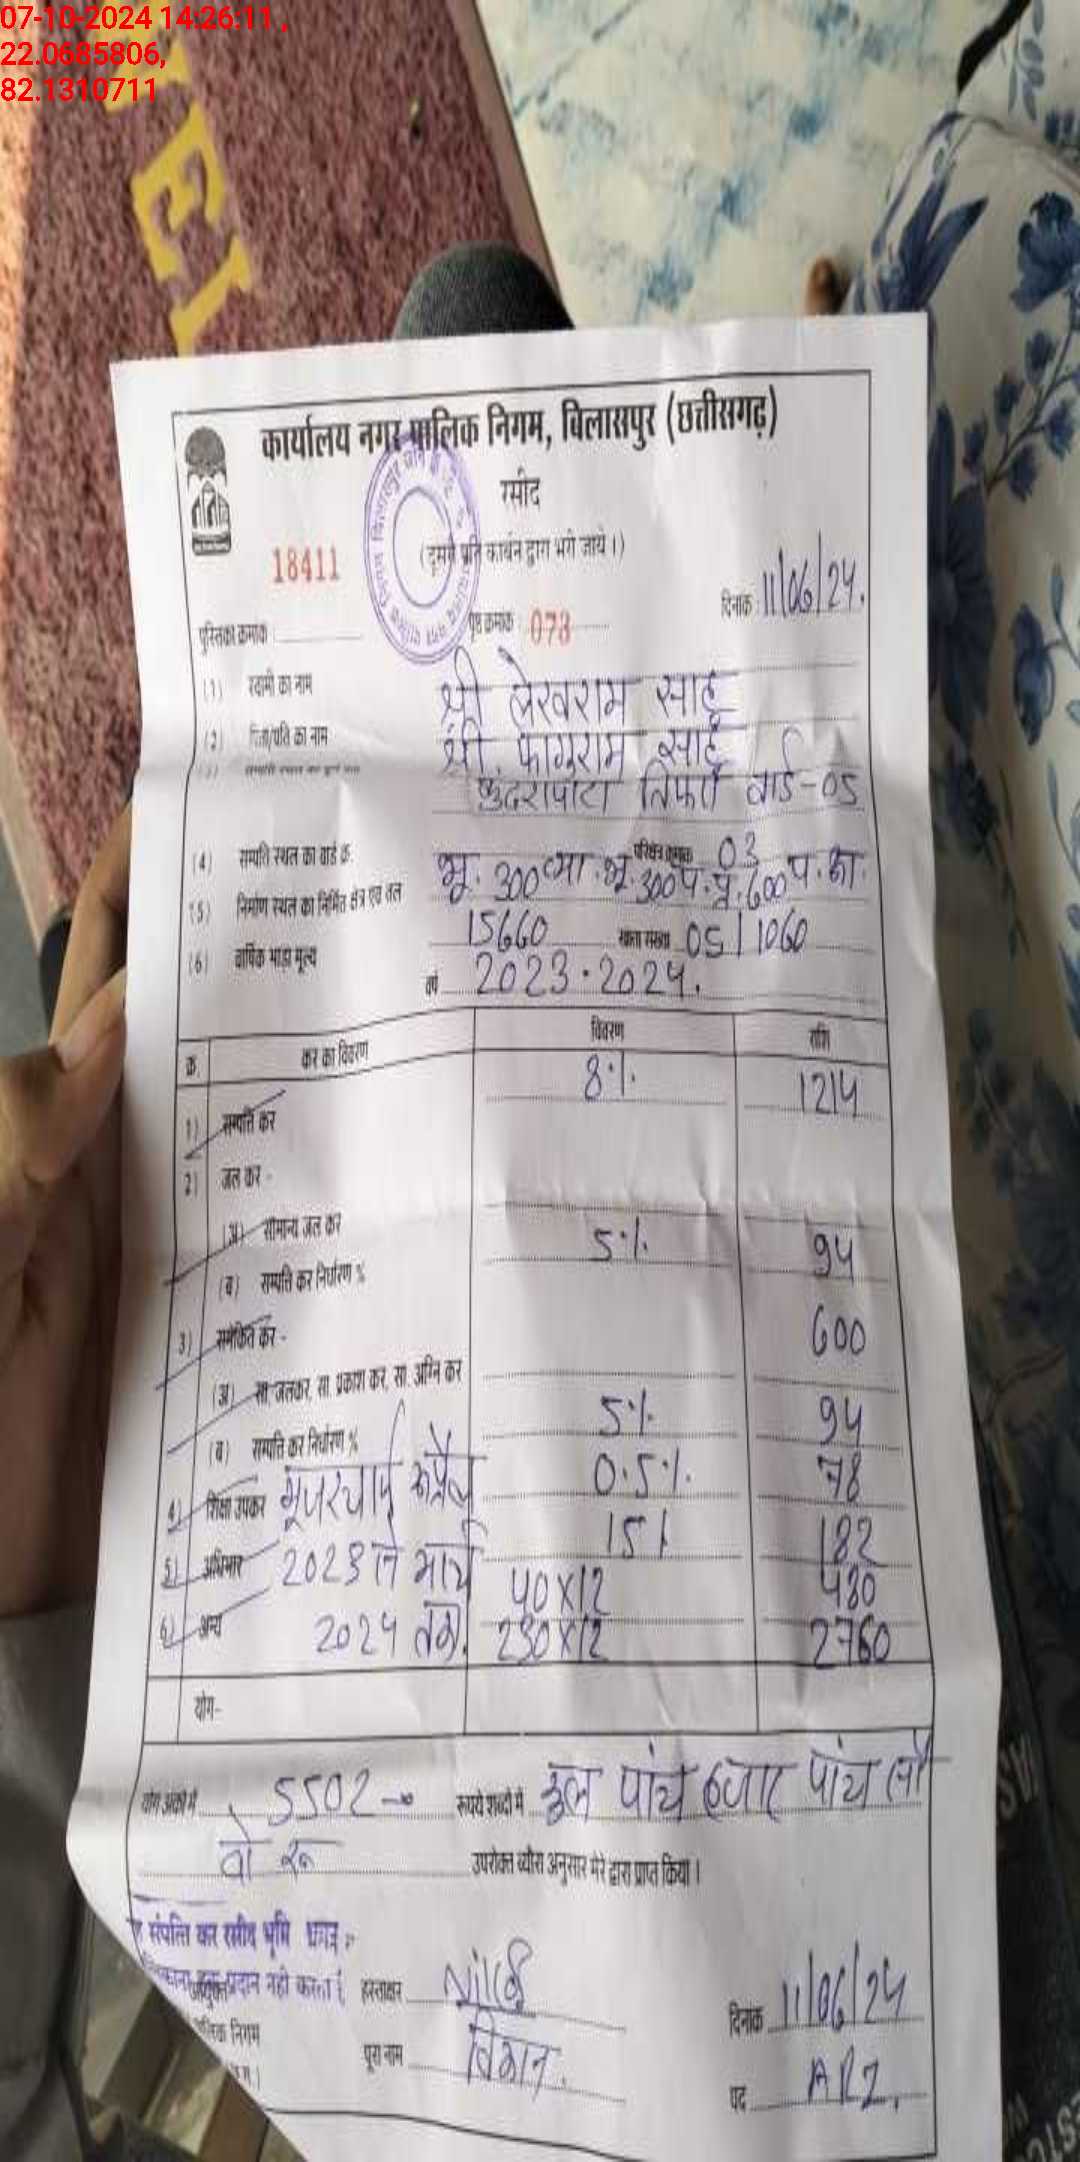 07-10-2024 14:26:11 ,
22.0685806,
82.1310711
TEL
कार्यालय नगर पालिक निगम, बिलासपुर (छत्तीसगढ़)
रसीद
(दूसरी प्रति कार्बन द्वारा भरी जाये।)
18411
दिनांक 11/06/24.
पुस्तिका क्रमांक
पृष्ठ क्रमांक 073
(1) स्वामी का नाम श्री लेखराम साहू
(2) पिता/पति का नाम श्री. फागुराम साहू
तिफरा वार्ड-05
(4) सम्पत्ति स्थल का वार्ड क्र. परिक्षेत्र क्रमांक 03
(5) निर्माण स्थल का निर्मित क्षेत्र एवं तल भू. 300
(6) वार्षिक भाड़ा मूल्य 15660 खाता संख्या 05/1060
वर्ष 2023-2024.
क्र. कर का विवरण विवरण राशि
1) सम्पत्ति कर 8% 1214
2) जल कर -
(अ) सामान्य जल कर
(ब) सम्पत्ति कर निर्धारण % 5% 94
3) समेकित कर - 600
(अ) सा. जलकर, सा. प्रकाश कर, सा. अग्नि कर
(ब) सम्पत्ति कर निर्धारण % 5% 94
4) शिक्षा उपकर 0.5% 78
5) अधिभार 2023 से मार्च 15% 182
40x12 480
6) अन्य 2024 तक. 230x12 2760
योग-
योग अंकों में 5502 रूपये शब्दों में कुल पांच हजार पांच सौ
दो रु
उपरोक्त ब्यौरा अनुसार मेरे द्वारा प्राप्त किया।
संपत्ति कर रसीद भूमि
प्रदान नही करता है
हस्ताक्षर
दिनांक 11/06/24
पालिक निगम
पूरा नाम
पद